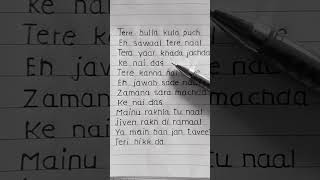 Tere bulla kula puch
Eh sawaal tere naal
Tera yaar khada jachda
Ke nai das
Tere kanna nai
Eh jawab sade naal
Zamana sara machda
Ke nai das
Mainu rakhla tu naal
Jiven rakh di ramaal
Ya main ban jan taveet
Teri hikk da
Mainu naal